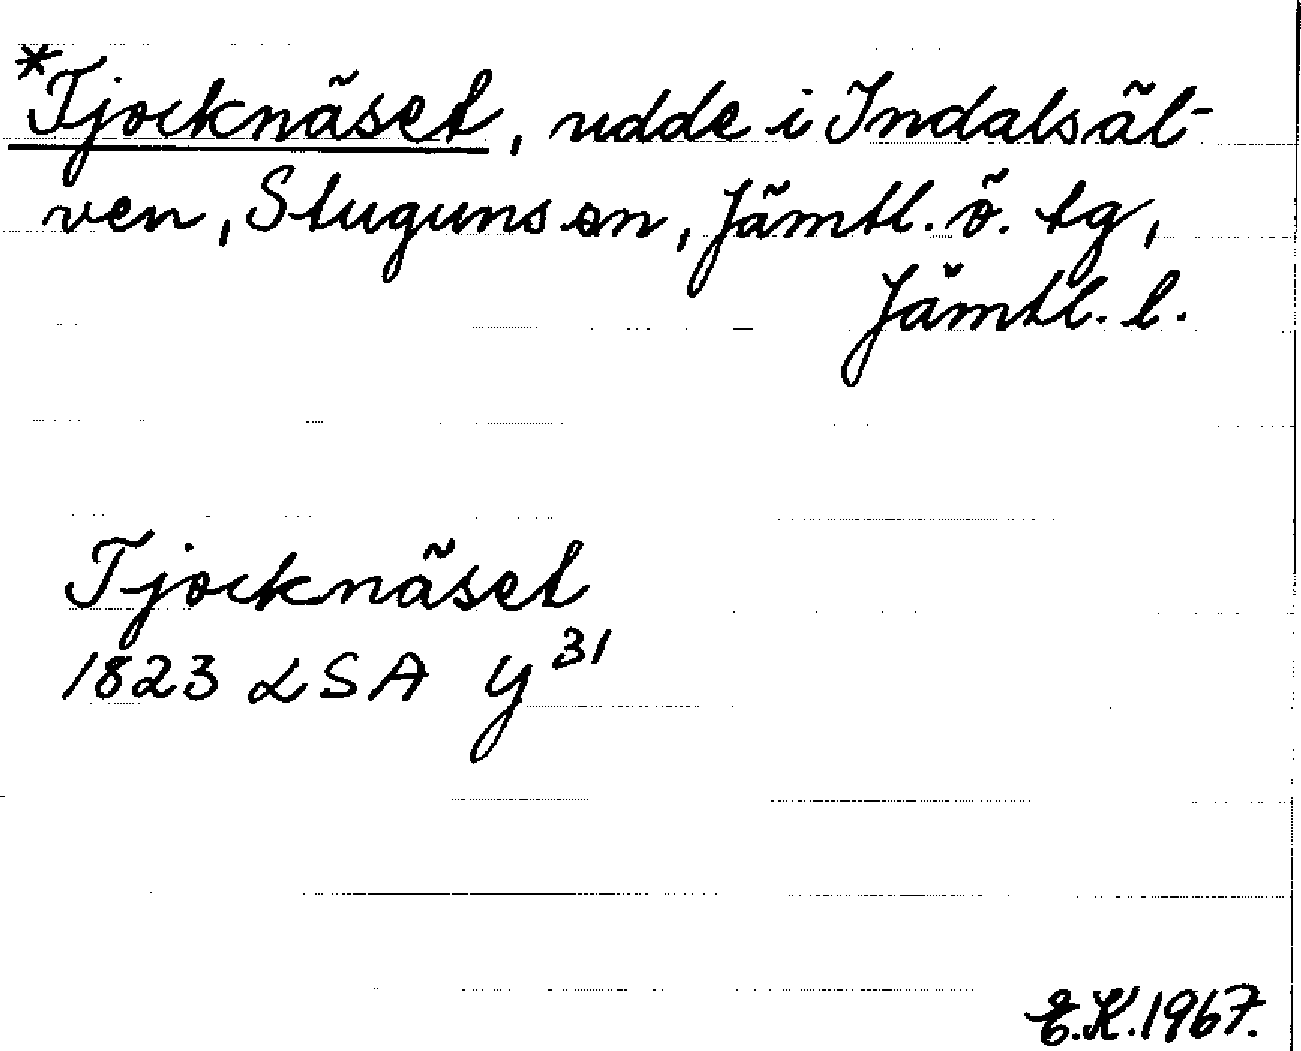 *Tjocknäset, udde i Indalsäl-
ven, Stuguns sn, Jämtl. ö. tg,
Jämtl. l.
Tjocknäset
1823 LSA Y³¹
E.K.1967.